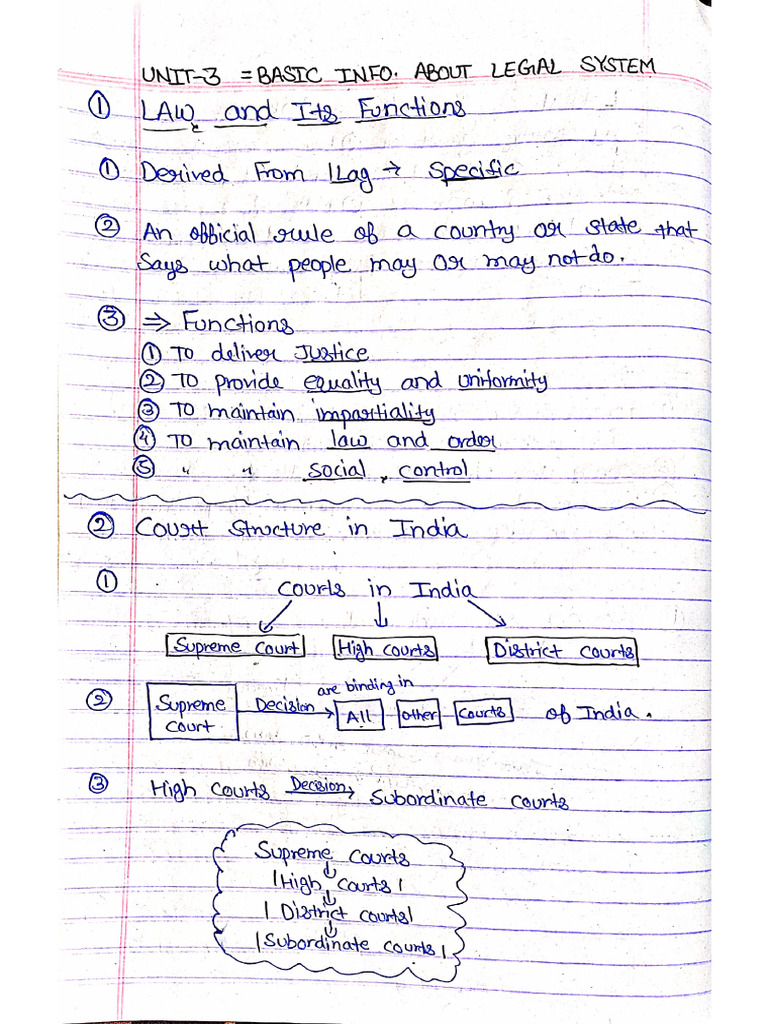 UNIT-3 = BASIC INFO. ABOUT LEGAL SYSTEM
① LAW and Its Functions
① Derived From lLag → Specific
② An official rule of a country or state that
Says what people may or may not do.
③ ⇒ Functions
① To deliver Justice
② To provide equality and uniformity
③ To maintain impartiality
④ To maintain law and order
⑤ " " social, control
② Court structure in India
① Courts in India
Supreme Court High courts District courts
are binding in
② Supreme court Decision → All other courts of India.
③ High courts Decision → Subordinate courts
Supreme courts
High courts
District courts
Subordinate courts